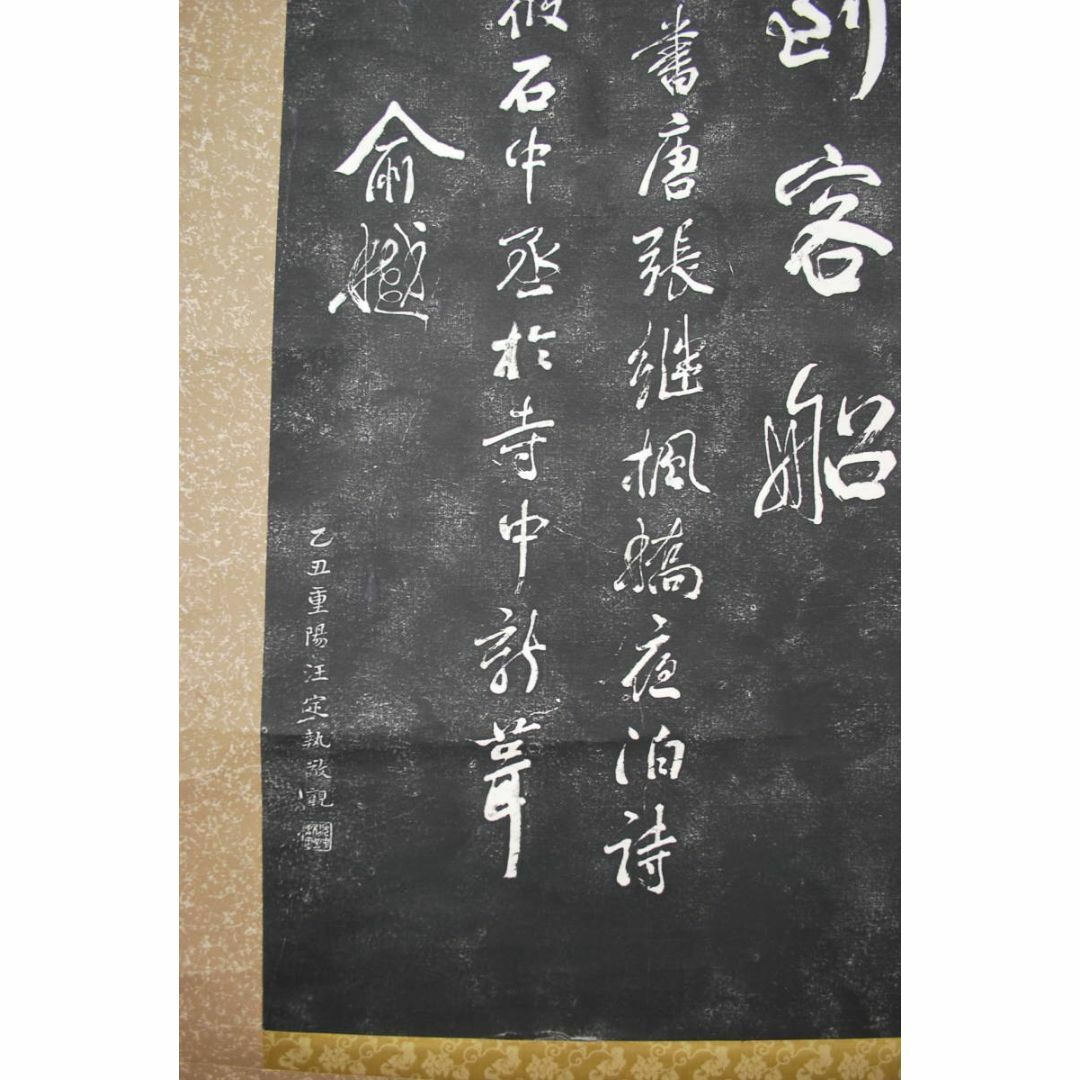 到客船
書唐張继楓橋夜泊詩
筱石中丞於寺中新葺
俞樾
乙丑重陽汪定執敬觀